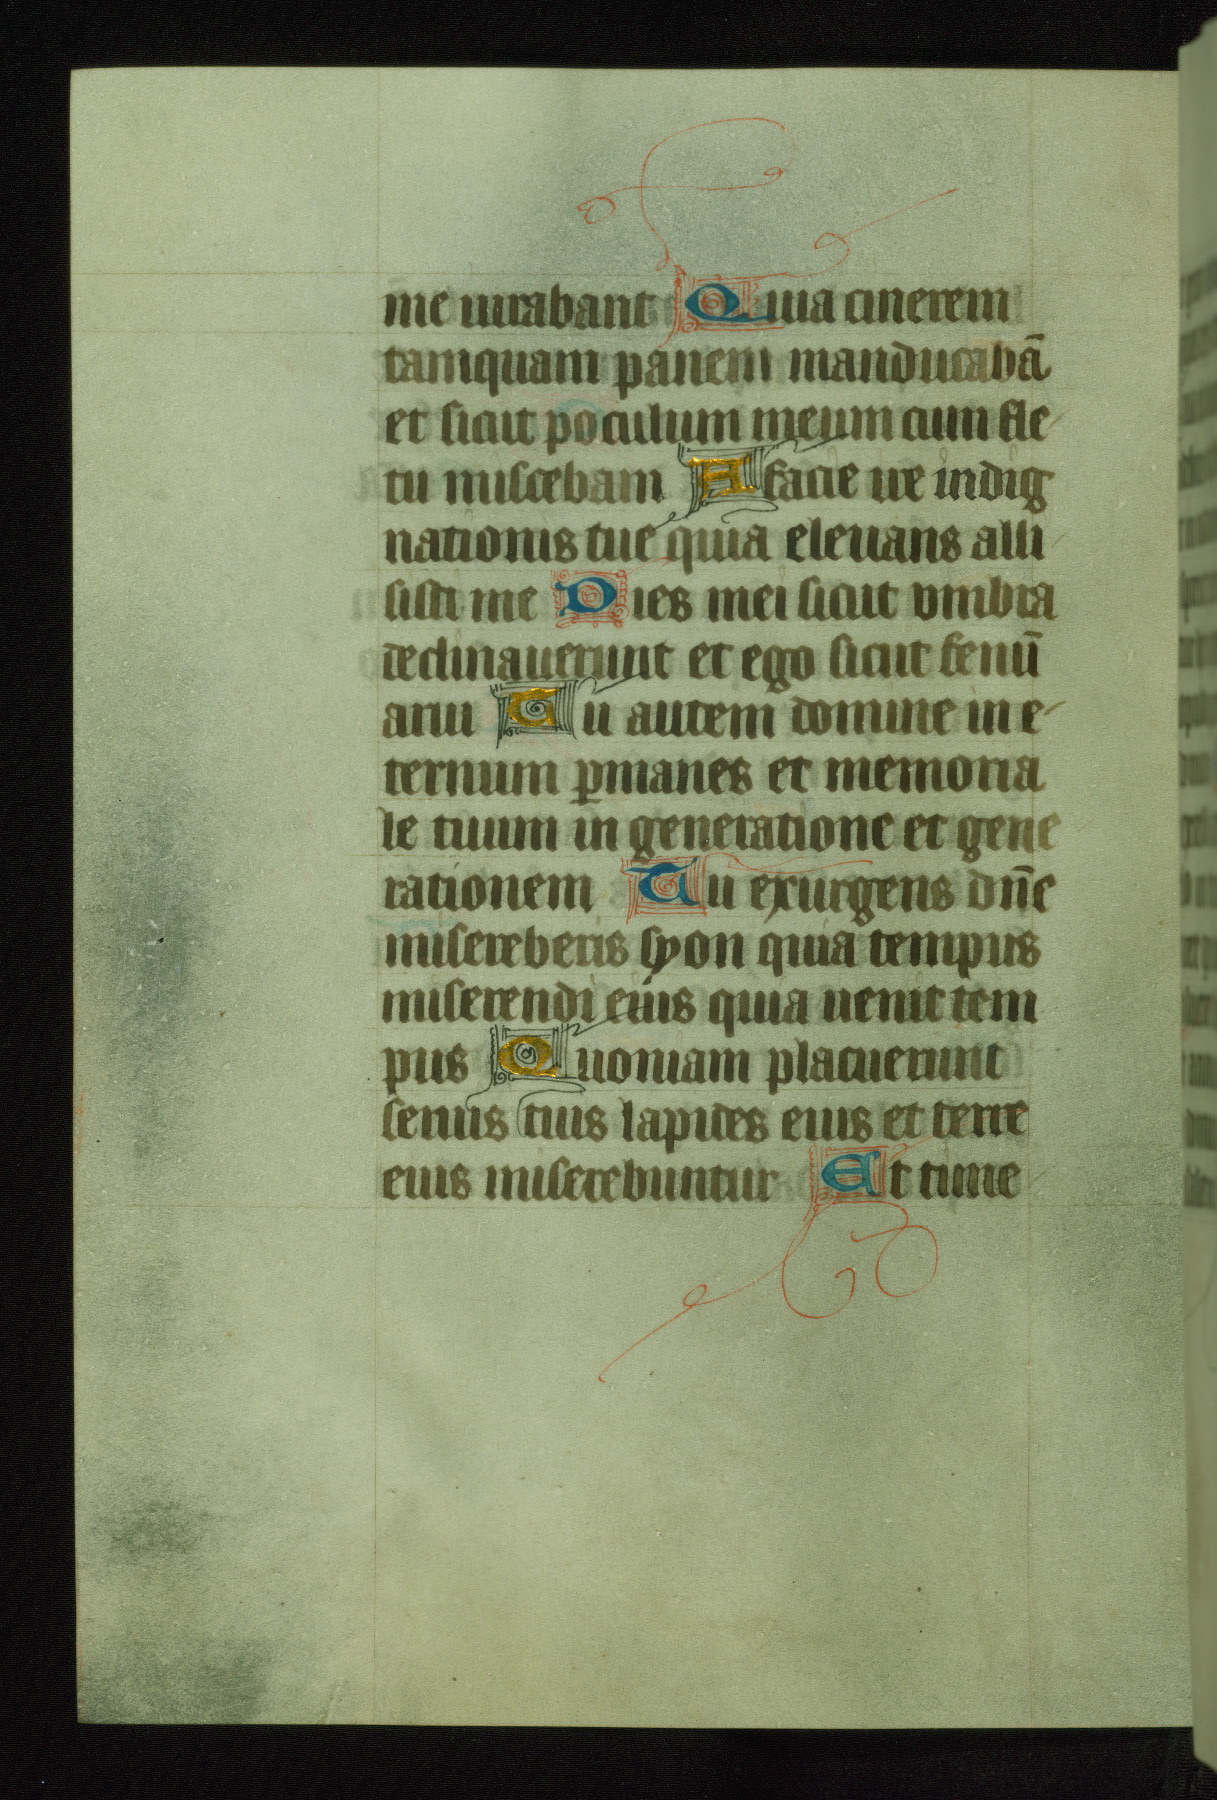 me iurabant Quia cinerem
tamquam panem manducabā
et sicut poculum meum cum fle
tu miscebam A facie ire indig
nationis tue quia elevans alli
sisti me Dies mei sicut vmbra
declinauerunt et ego sicut fenū
arui Tu autem domine in e
ternum ꝑmanes et memoria
le tuum in generatione et gene
rationem Tu exurgens dn̄e
misereberis syon quia tempus
miserendi eius quia uenit tem
pus Quoniam placuerunt
seruis tuis lapides eius et terre
eius miserebuntur Et time